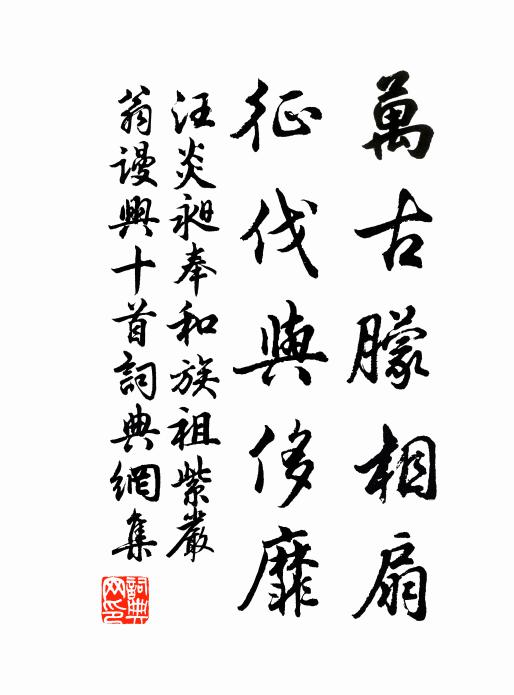 萬古朦相扇
征伐與侈靡
汪炎昶奉和族祖紫巖
翁謾興十首詞典網集
詞典网印